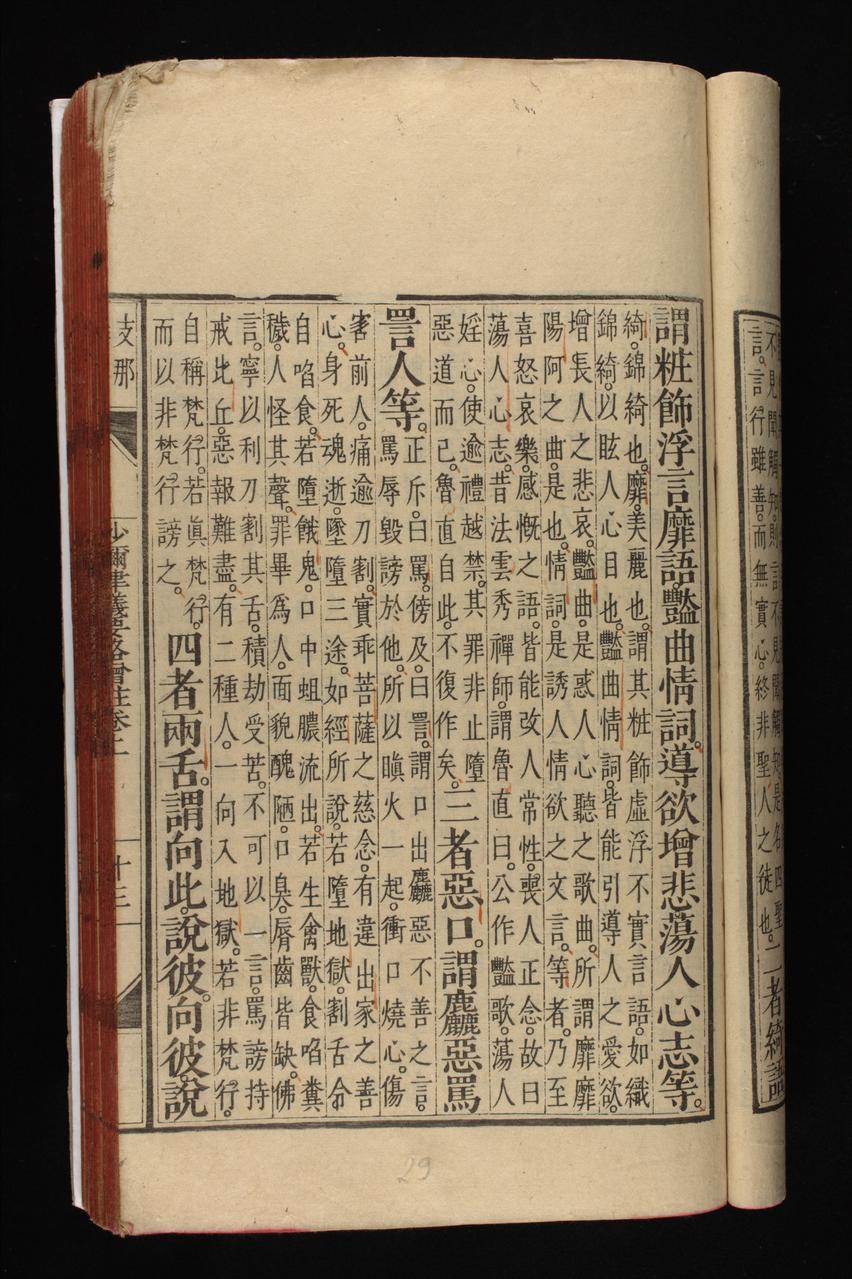 不見聞觸知。則言不見聞觸知。是名四聖
言。言行雖善。而無實心。終非聖人之徒也。
二者綺語
謂粧飾浮言靡語。豔曲情詞。導欲增悲。蕩人心志等。
綺。錦綺也。靡。美麗也。謂其粧飾虛浮不實言語。如織
錦綺。以眩人心目也。豔曲情詞。皆能引導人之愛欲。
增長人之悲哀。豔曲。是惑人心聽之歌曲。所謂靡靡
陽阿之曲。是也。情詞。是誘人情欲之文言。等者。乃至
喜怒哀樂。感慨之語。皆能改人常性。喪人正念。故曰
蕩人心志。昔法雲秀禪師。謂魯直曰。公作豔歌。蕩人
婬心。使逾禮越禁。其罪非止墮
惡道而已。魯直自此。不復作矣。
三者惡口。謂麤惡罵
詈人等。
正斥。曰罵。傍及。曰詈。謂口出麤惡不善之言。
罵辱毀謗於他。所以瞋火一起。衝口燒心。傷
害前人。痛逾刀割。實乖菩薩之慈念。有違出家之善
心。身死魂逝。墜墮三途。如經所說。若墮地獄。割舌令
自啗食。若墮餓鬼。口中蛆膿流出。若生禽獸。食啗糞
穢。人怪其聲。罪畢爲人。面貌醜陋。口臭。脣齒皆缺。佛
言。寧以利刀割其舌。積劫受苦。不可以一言。罵謗持
戒比丘。惡報難盡。有二種人。一向入地獄。若非梵行。
自稱梵行。若眞梵行。
而以非梵行謗之。
四者兩舌。謂向此說彼。向彼說
支那
沙彌律儀要略增註卷上
十三
29